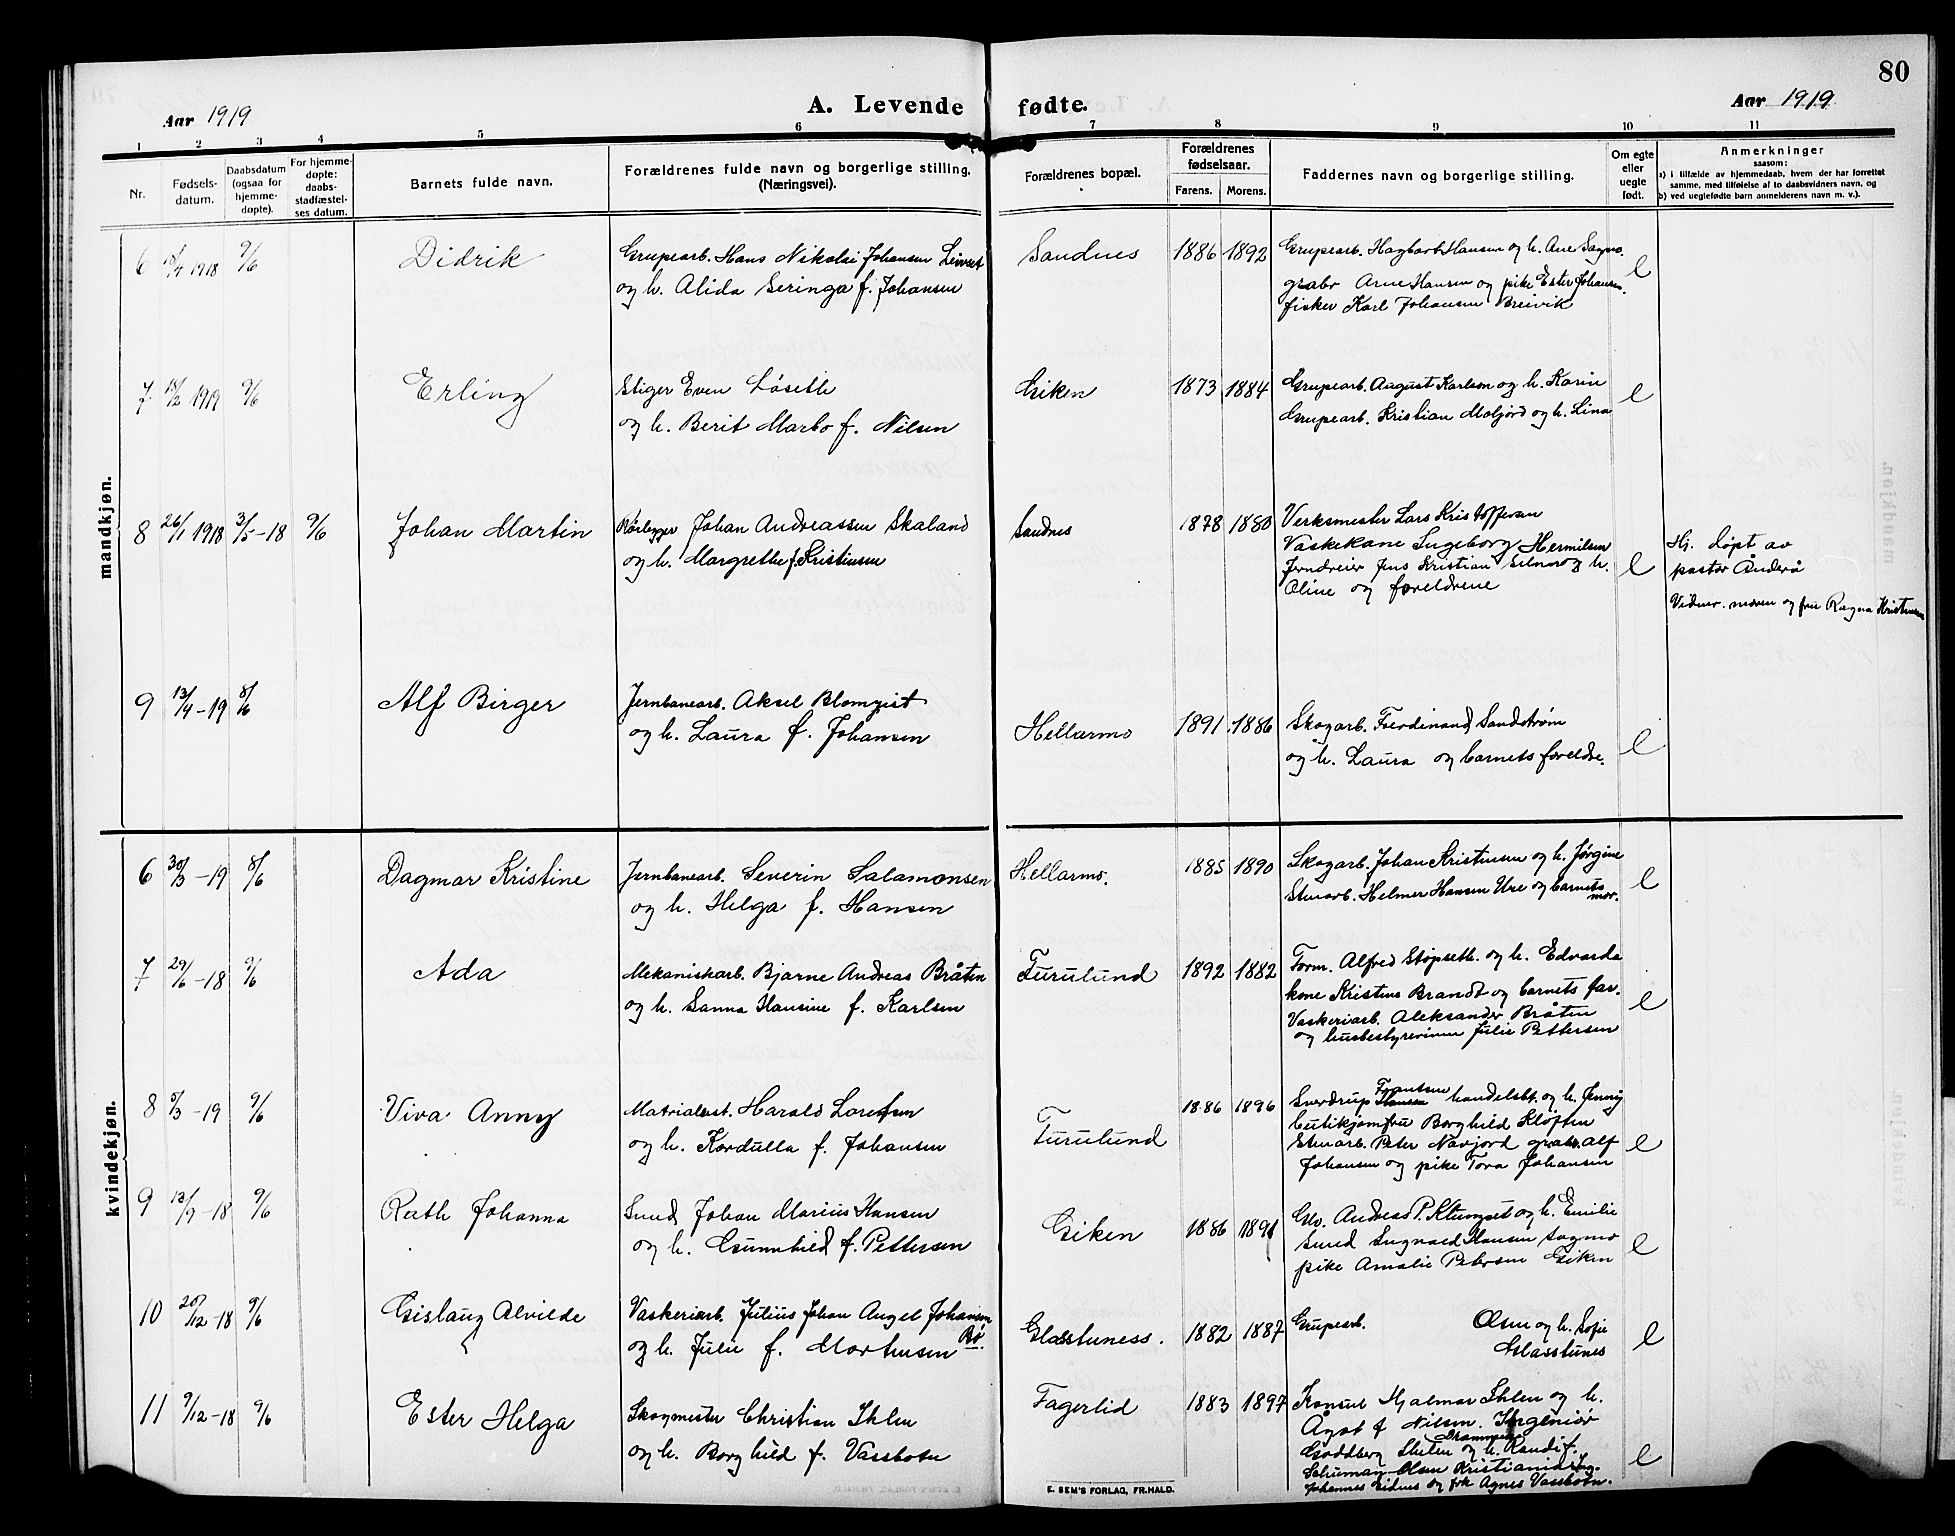 80
Aar 1919
A. Levende
fødte.
Aar 1919
1 2 3 4 5 6 7 8 9 10 11
Nr.
Fødsels-
datum.
Daabsdatum
(ogsaa for
hjemme-
døpte).
For hjemme-
døpte:
daabs-
stadfæstel-
ses datum.
Barnets fulde navn.
Forældrenes fulde navn og borgerlige stilling.
(Næringsvei).
Forældrenes bopæl.
Forældrenes
fødselsaar.
Farens. Morens.
Faddernes navn og borgerlige stilling.
Om egte
eller
uegte
født.
Anmerkninger
saasom:
a) i tilfælde av hjemmedaab, hvem der har forrettet
samme, med tilføielse af to daabsvidners navn, og
b) ved uegtefødte børn anmelderens navn m. v.).
mandkjøn.
6 1918 9/6 Didrik
Grupearb. Hans Nikolai Johansen
og h. Alida Seringa f. Johansen
Sandnes 1886 1892
Grupearb. Hagbart Hansen og h. Ane Sagmo.
gsabr Arne Hansen og pike Ester Johansen.
fisker Karl Johansen Breivik
e
7 18/2 1919 9/6 Erling
Stiger Even Løseth
og h. Berit Marbo f. Nilsen
Giken 1873 1884
Grupearb. August Karlsen og h. Karin
Grupearb. Kristian Moljord og h. Lina
e
8 26/1 1918 3/5-18 9/6 Johan Martin
Rørlegger Johan Andreassen Skaland
og h. Margrethe f. Kristiansen
Sandnes 1878 1880
Verksmester Lars Kristoffersen
Vaskekone Ingeborg Hermilsen
Jerndreier Jens Kristian Selnes og h.
Oline og foreldrene
e
Hj. døpt av
pastor Änderå
Vidner. moren og fru Ragna Kristensen
9 13/4-19 8/6 Alf Birger
Jernbanearb. Aksel Blomqist
og h. Laura f. Johansen
Hellarmo 1891 1886
Skogarb. Ferdinand Sandstrøm
og h. Laura og barnets foreldre.
e
kvindekjøn.
6 30/3-19 8/6 Dagmar Kristine
Jernbanearb. Severin Salamonsen
og h. Helga f. Hansen
Hellarmo. 1885 1890
Skogarb. Johan Kristiansen og h. Jørgine
Stenarb. Helmer Hansen Ure og barnets
mor.
e
7 29/6-18 9/6 Ada
Mekanikarb. Bjarne Andreas Bråten
og h. Sanna Hansine f. Karlsen
Furulund 1892 1882
Form. Alfred Støpseth. og h. Edvarda
kone Kristine Brandt og barnets far.
Vaskeriarb. Aleksander Bråten
og husbestyrerinne Julie Pettersen
e
8 5/3-19 9/6 Viva Anny
Matrialist. Harald Lorentsen
og h. Kordulla f. Johansen
Furulund 1886 1896
Sverdrup Frantsen handelsbt. og h. Jenny
butikjomfru Borghild Kloften
Stenarb. Peter Navjord grabr. Alf
Johansen og pike Tora Johansen
e
9 13/9-18 9/6 Ruth Johanna
Smed Johan Marius Hansen
og h. Gunnhild f. Pettersen
Giken 1886 1891
Gbr. Andreas P. Klungset og h. Emilie
Smed Sugvard Hansen Sagmo
pike Amalie Petersen Giken
e
10 20/12-18 9/6 Gislaug Alvilde
Vaskeriarb. Julius Johan Angel Johansen
Bø.
og h. Julie f. Mortensen
Glastuness. 1882 1887
Grupearb. Olsen og h. Sofie
Glasstunes
e
11 9/12-18 9/6 Ester Helga
Skogmester Christian Ihlen
og h. Borghild f. Vassbotn
Fagerlid 1883 1897
Konsul Hjalmar Ihlen og h.
Ågot f Nilsen. Ingeniør
Drammen
Goddberg Ihlen og h. Randi f.
Schuman-Olsen Kristiania Ing.
Johannes Eidnes og frk Agnes Vassbotn.
e
E. SEM'S FORLAG, FR.HALD.